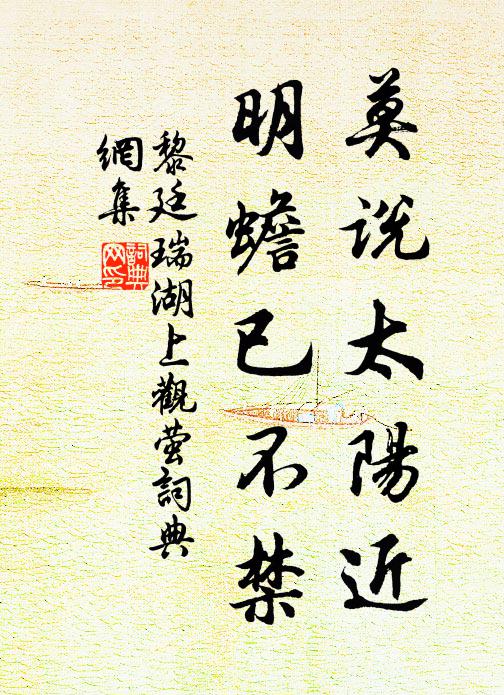 莫说太陽近
明蟾已不禁
黎廷瑞湖上觀萤詞典
網集
詞典
网印